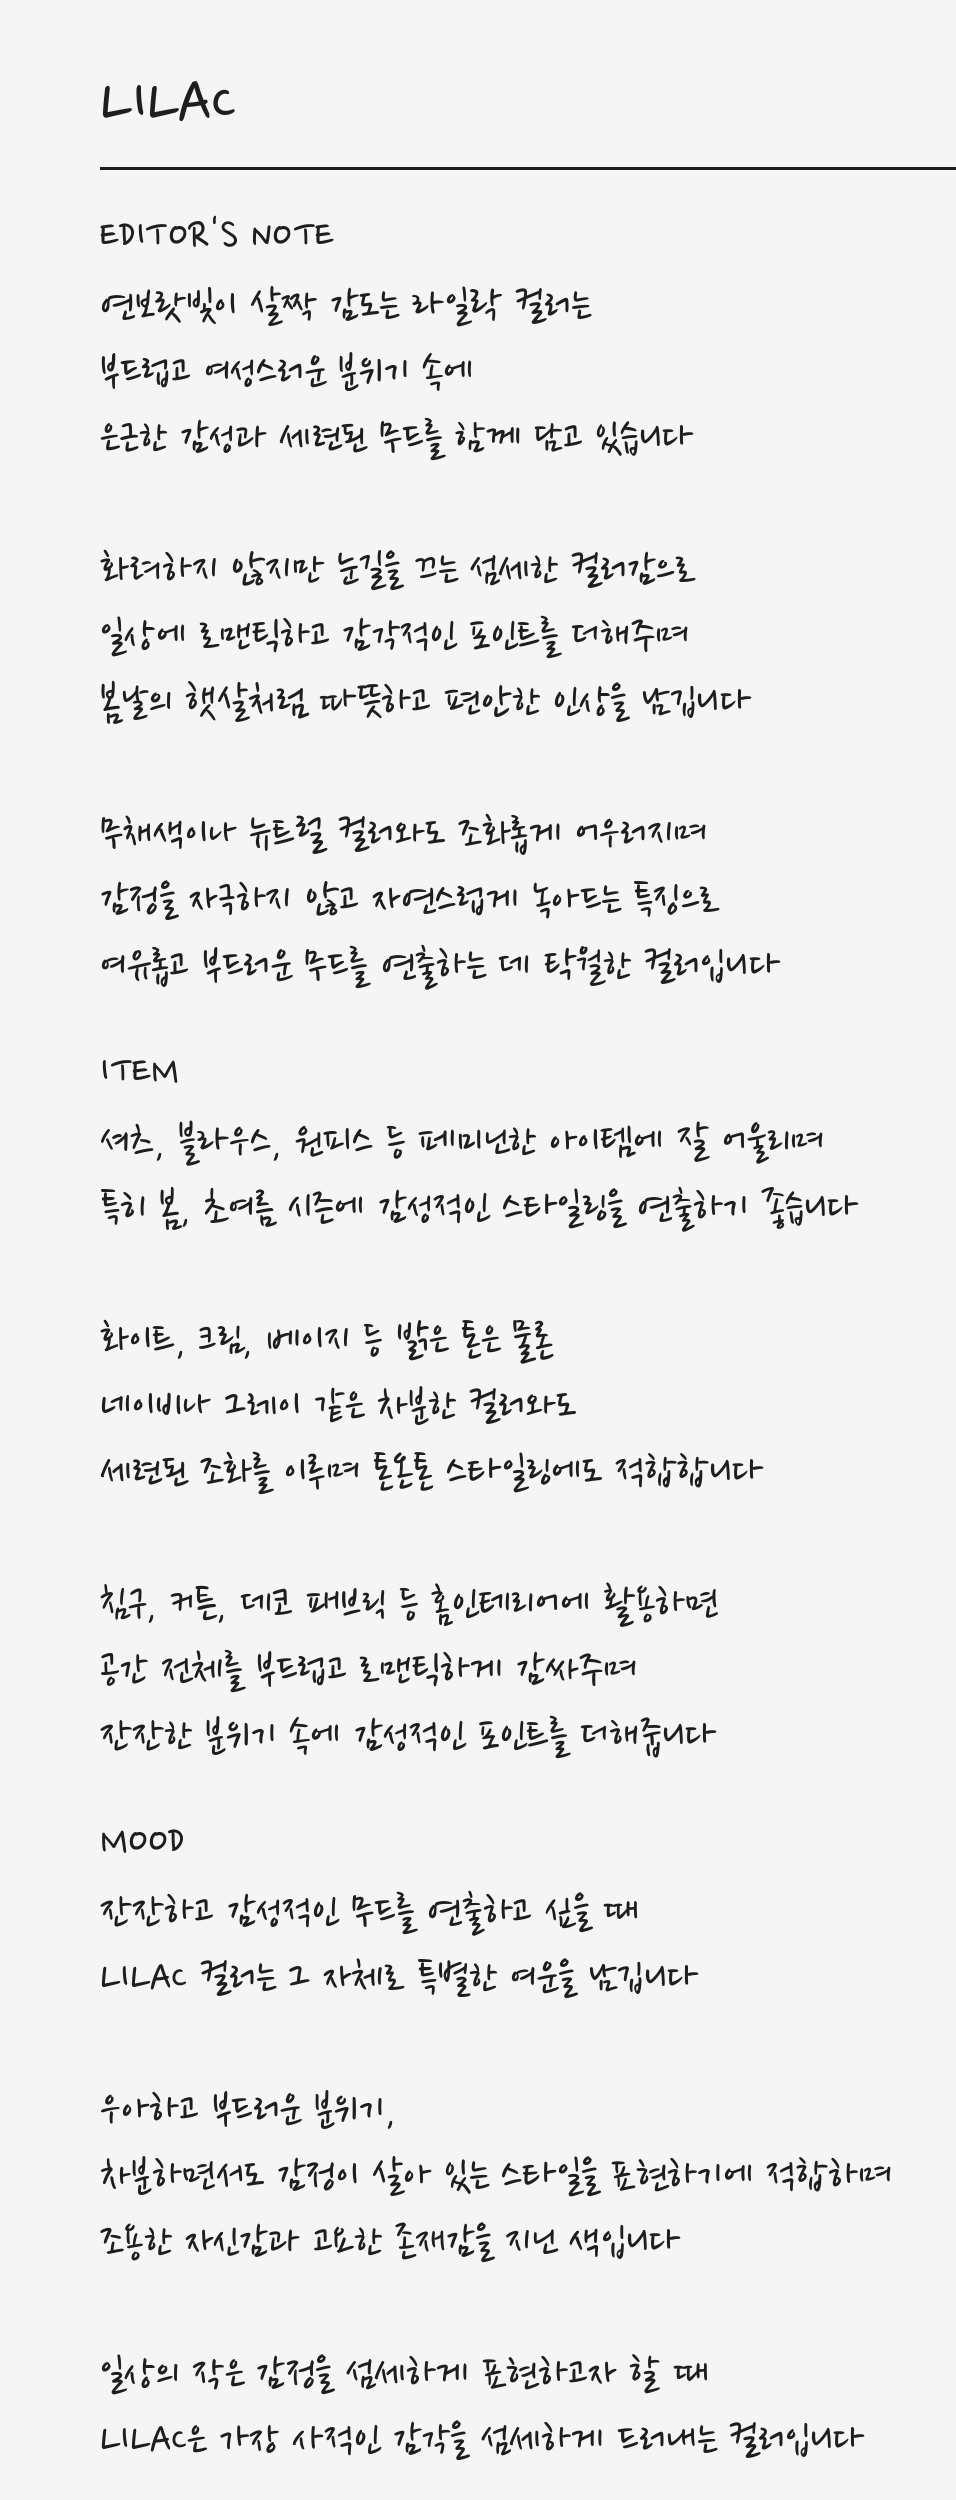 LILAC
EDITOR'S NOTE
연보랏빛이 살짝 감도는 라일락 컬러는
부드럽고 여성스러운 분위기 속에
은근한 감성과 세련된 무드를 함께 담고 있습니다
화려하지 않지만 눈길을 끄는 섬세한 컬러감으로
일상에 로맨틱하고 감각적인 포인트를 더해주며
봄날의 햇살처럼 따뜻하고 편안한 인상을 남깁니다
무채색이나 뉴트럴 컬러와도 조화롭게 어우러지며
감정을 자극하지 않고 자연스럽게 녹아드는 특징으로
여유롭고 부드러운 무드를 연출하는 데 탁월한 컬러입니다
ITEM
셔츠, 블라우스, 원피스 등 페미닌한 아이템에 잘 어울리며
특히 봄, 초여름 시즌에 감성적인 스타일링을 연출하기 좋습니다
화이트, 크림, 베이지 등 밝은 톤은 물론
네이비나 그레이 같은 차분한 컬러와도
세련된 조화를 이루며 톤온톤 스타일링에도 적합합니다
침구, 커튼, 데코 패브릭 등 홈인테리어에 활용하면
공간 전체를 부드럽고 로맨틱하게 감싸주며
잔잔한 분위기 속에 감성적인 포인트를 더해줍니다
MOOD
잔잔하고 감성적인 무드를 연출하고 싶을 때
LILAC 컬러는 그 자체로 특별한 여운을 남깁니다
우아하고 부드러운 분위기,
차분하면서도 감정이 살아 있는 스타일을 표현하기에 적합하며
조용한 자신감과 고요한 존재감을 지닌 색입니다
일상의 작은 감정을 섬세하게 표현하고자 할 때
LILAC은 가장 사적인 감각을 섬세하게 드러내는 컬러입니다